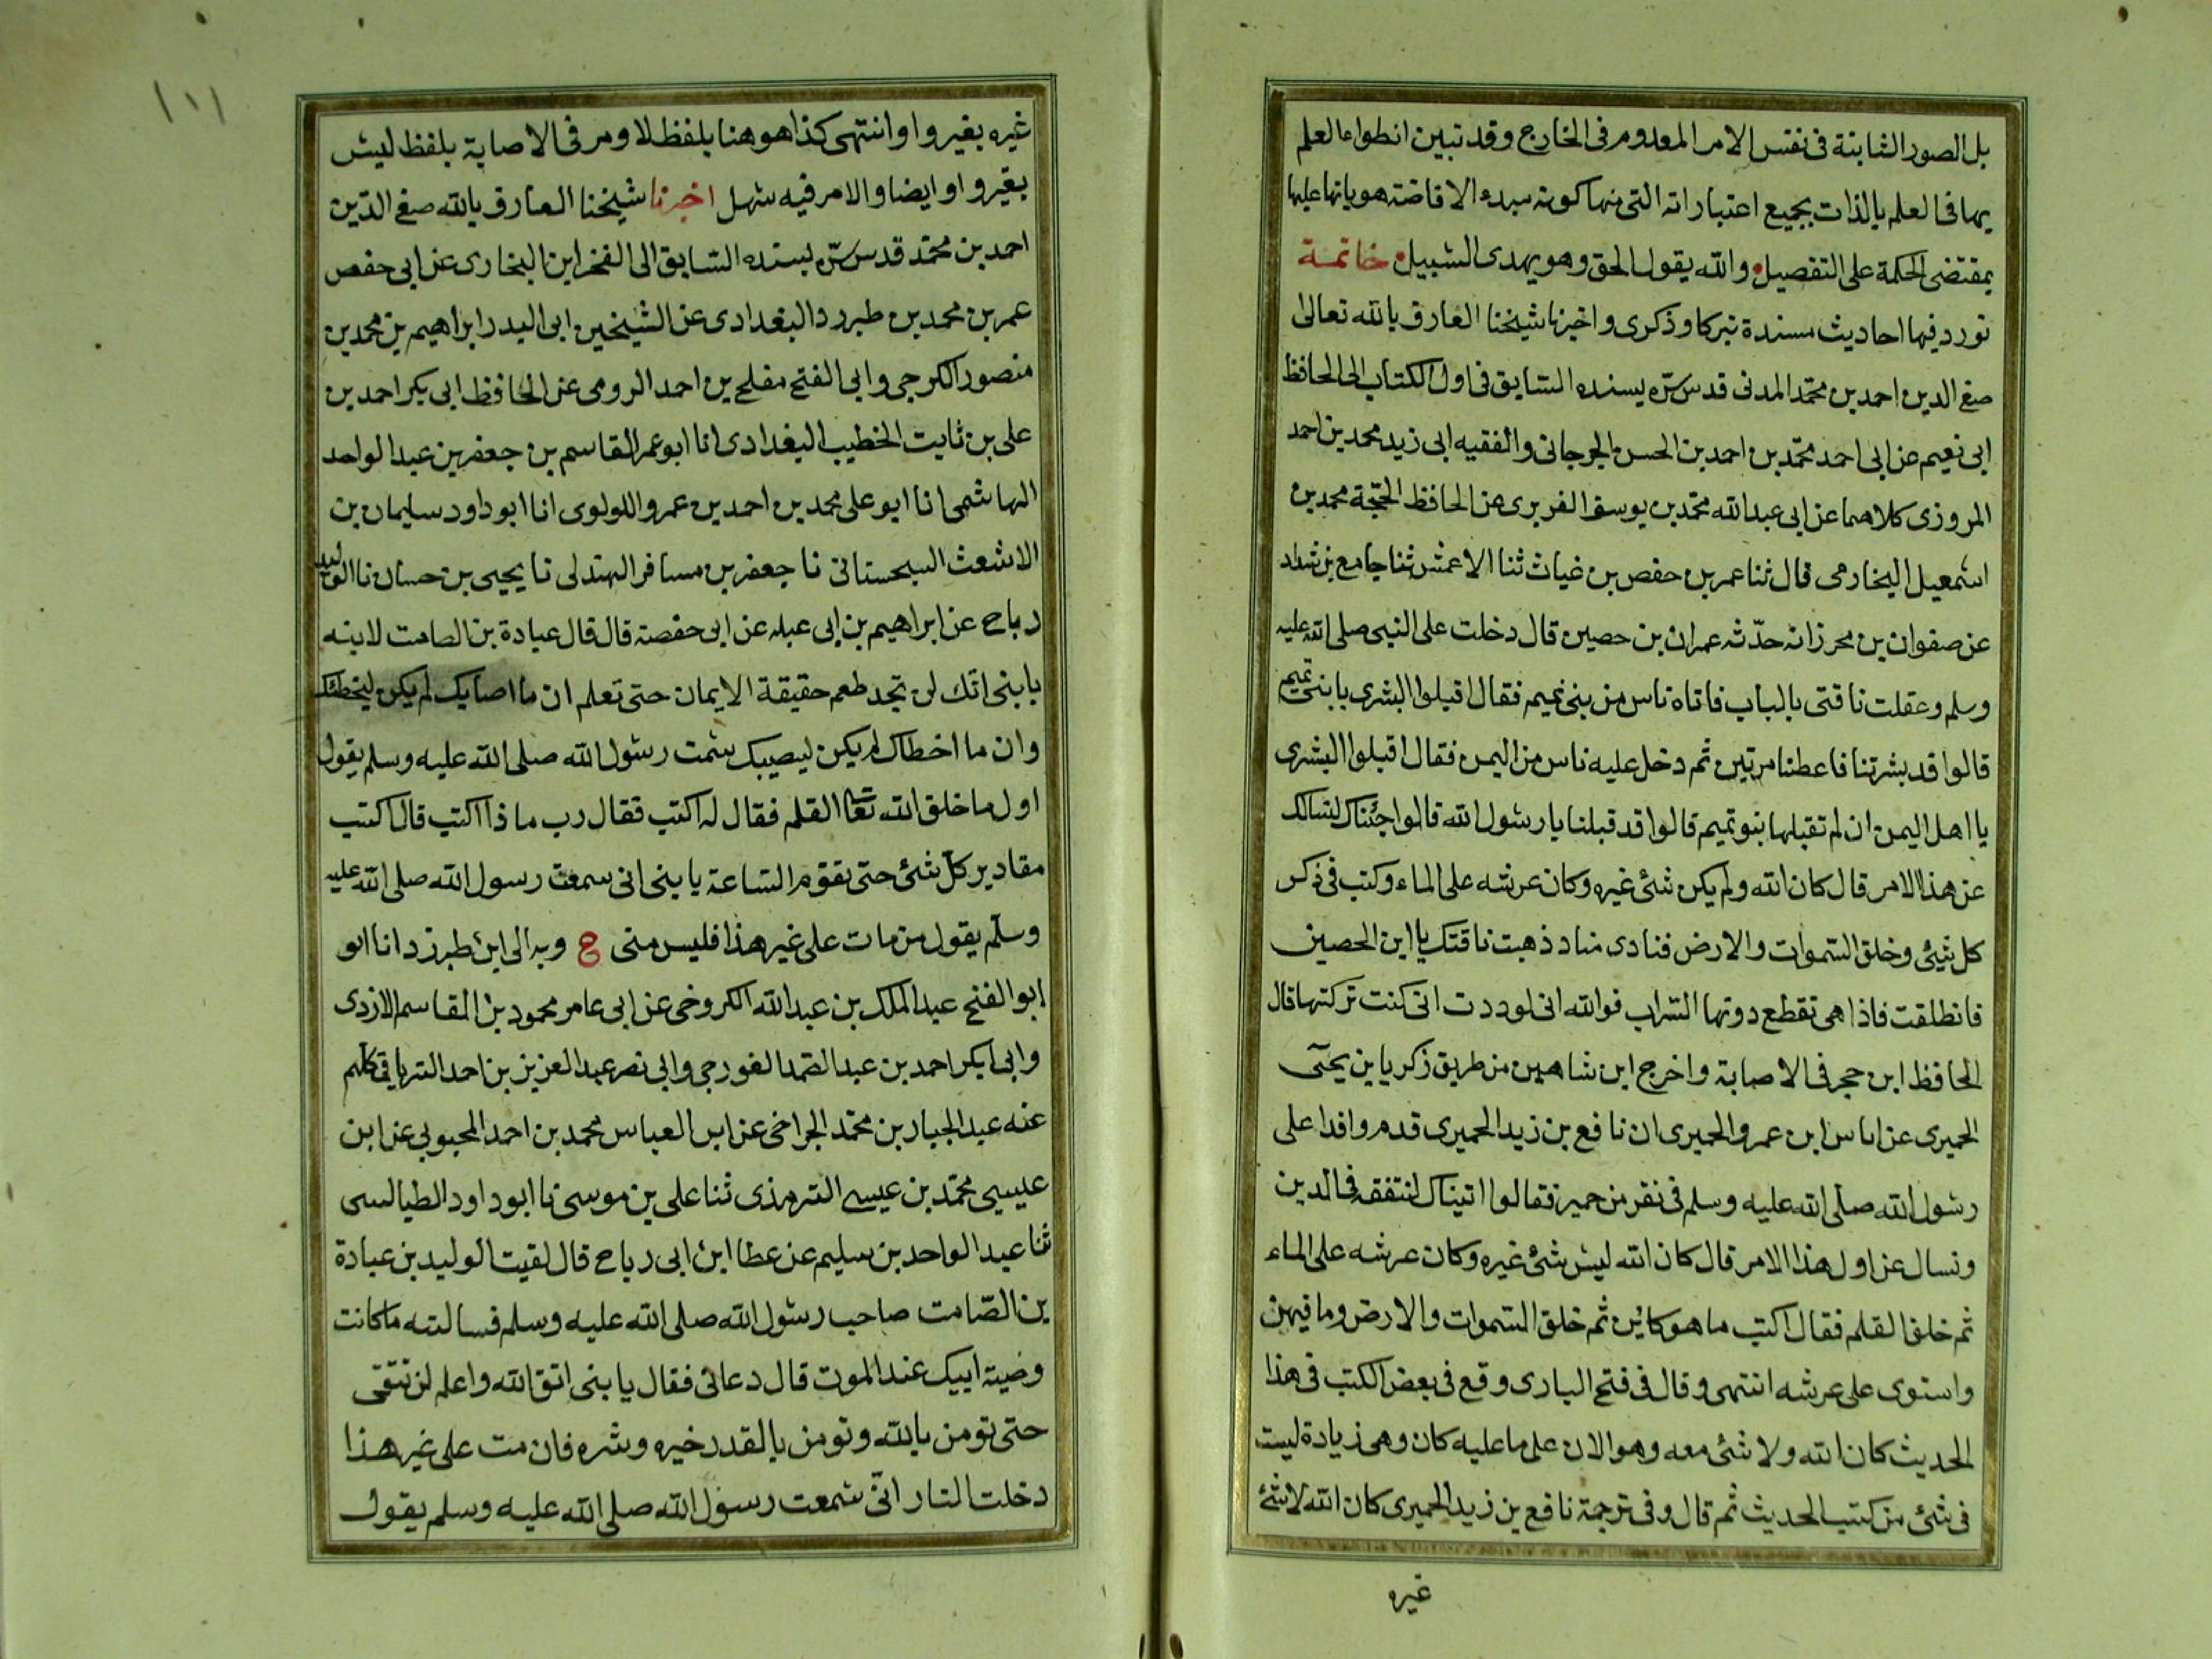 بل الصور الثابتة فى نفس الامر المعدوم فى الخارج وقد تبين انطواء العلم
بها فى العلم بالذات بجميع اعتباراته التى منها كونه مبدء الافاضة هوياتها عليها
بمقتضى الحكمة على التفصيل والله يقول الحق وهو يهدى السبيل خاتمة
نورد فيها احاديث مسندة تبركا وذكرى واخبرنا شيخنا العارف بالله تعالى
صفى الدين احمد بن محمد المدنى قدس سره بسنده السابق فى اول الكتاب الى الحافظ
ابى نعيم عن ابى احمد محمد بن احمد بن الحسن الجرجانى والفقيه ابى زيد محمد بن احمد
المروزى كلاهما عن ابى عبد الله محمد بن يوسف الفربرى عن الحافظ الحجة محمد بن
اسمعيل البخارى قال ثنا عمر بن حفص بن غياث ثنا الاعمش ثنا جامع بن شداد
عن صفوان بن محرز انه حدثه عمران بن حصين قال دخلت على النبى صلى الله عليه
وسلم وعقلت ناقتى بالباب فاتاه ناس من بنى تميم فقال اقبلوا البشرى يا بنى تميم
قالوا قد بشرتنا فاعطنا مرتين ثم دخل عليه ناس من اليمن فقال اقبلوا البشرى
يا اهل اليمن ان لم تقبلها بنو تميم قالوا قد قبلنا يا رسول الله قالوا جئناك لنسالك
عن هذا الامر قال كان الله ولم يكن شئ غيره وكان عرشه على الماء وكتب فى ذكر
كل شئ وخلق السموات والارض فنادى مناد ذهبت ناقتك يا ابن الحصين
فانطلقت فاذا هى تقطع دونها السراب فوالله انى لوددت انى كنت تركتها قال
الحافظ ابن حجر فى الاصابة واخرج ابن شاهين من طريق زكريا بن يحيى
الحميرى عن اياس ابن عمرو الحميرى ان نافع بن زيد الحميرى قدم وافدا على
رسول الله صلى الله عليه وسلم فى نفر من حمير فقالوا اتيناك لنتفقه فى الدين
ونسال عن اول هذا الامر قال كان الله ليس شئ غيره وكان عرشه على الماء
ثم خلق القلم فقال اكتب ما هو كائن ثم خلق السموات والارض وما فيهن
واستوى على عرشه انتهى وقال فى فتح البارى وقع فى بعض الكتب فى هذا
الحديث كان الله ولا شئ معه وهو الان على ما عليه كان وهى زيادة ليست
فى شئ من كتب الحديث ثم قال وفى ترجمة نافع بن زيد الحميرى كان الله لا شئ
غيره
١٠١
غيره بغير واو انتهى كذا هو هنا بلفظ لا ومر فى الاصابة بلفظ ليس
بغير واو ايضا والامر فيه سهل اخبرنا شيخنا العارف بالله صفى الدين
احمد بن محمد قدس سره بسنده السابق الى الفخر ابن البخارى عن ابى حفص
عمر بن محمد بن طبرزد البغدادى عن الشيخين ابى البدر ابراهيم بن محمد بن
منصور الكرجى وابى الفتح مفلح بن احمد الرومى عن الحافظ ابى بكر احمد بن
على بن ثابت الخطيب البغدادى انا ابو عمر القاسم بن جعفر بن عبد الواحد
الهاشمى انا ابو على محمد بن احمد بن عمرو اللولوى انا ابو داود سليمان بن
الاشعث السجستانى نا جعفر بن مسافر الهذلى نا يحيى بن حسان نا الوليد
رباح عن ابراهيم بن ابى عبله عن ابى حفصة قال قال عبادة بن الصامت لابنه
يا بنى انك لن تجد طعم حقيقة الايمان حتى تعلم ان ما اصابك لم يكن ليخطئك
وان ما اخطاك لم يكن ليصيبك سمت رسول الله صلى الله عليه وسلم يقول
اول ما خلق الله تعا القلم فقال له اكتب فقال رب ما ذا اكتب قال اكتب
مقادير كل شئ حتى تقوم الساعة يا بنى انى سمعت رسول الله صلى الله عليه
وسلم يقول من مات على غير هذا فليس منى ح وبه الى ابن طبرزد انا ابو
ابو الفتح عبد الملك بن عبد الله الكروخى عن ابى عامر محمود بن القاسم الازدى
وابى بكر احمد بن عبد الصمد الغورجى وابى نصر عبد العزيز بن احمد الترياقى كلهم
عنه عبد الجبار بن محمد الجراحى عن ابى العباس محمد بن احمد المحبوبى عن ابن
عيسى محمد بن عيسى الترمذى ثنا على بن موسى نا ابو داود الطيالسى
ثنا عبد الواحد بن سليم عن عطا ابن ابى رباح قال لقيت الوليد بن عبادة
بن الصامت صاحب رسول الله صلى الله عليه وسلم فسالته ما كانت
وصية ابيك عند الموت قال دعانى فقال يا بنى اتق الله واعلم لن تتقى
حتى تومن بالله وتومن بالقدر خيره وشره فان مت على غير هذا
دخلت النار انى سمعت رسول الله صلى الله عليه وسلم يقول